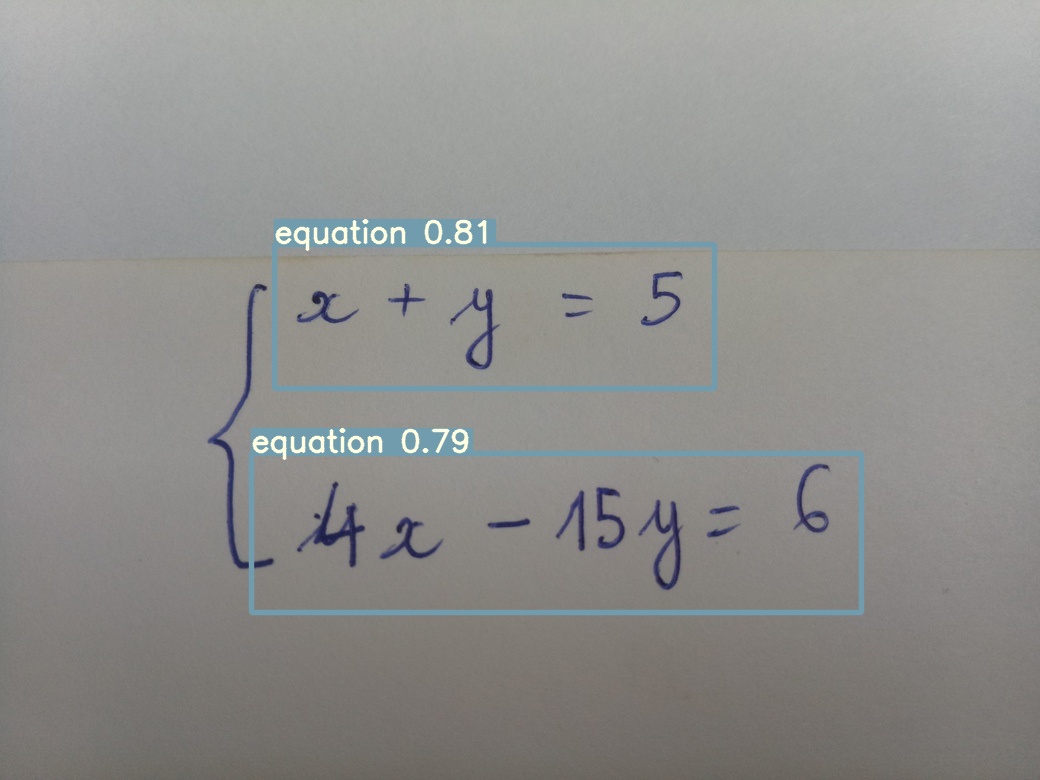 equation 0.81
x + y = 5
equation 0.79
4x - 15y = 6